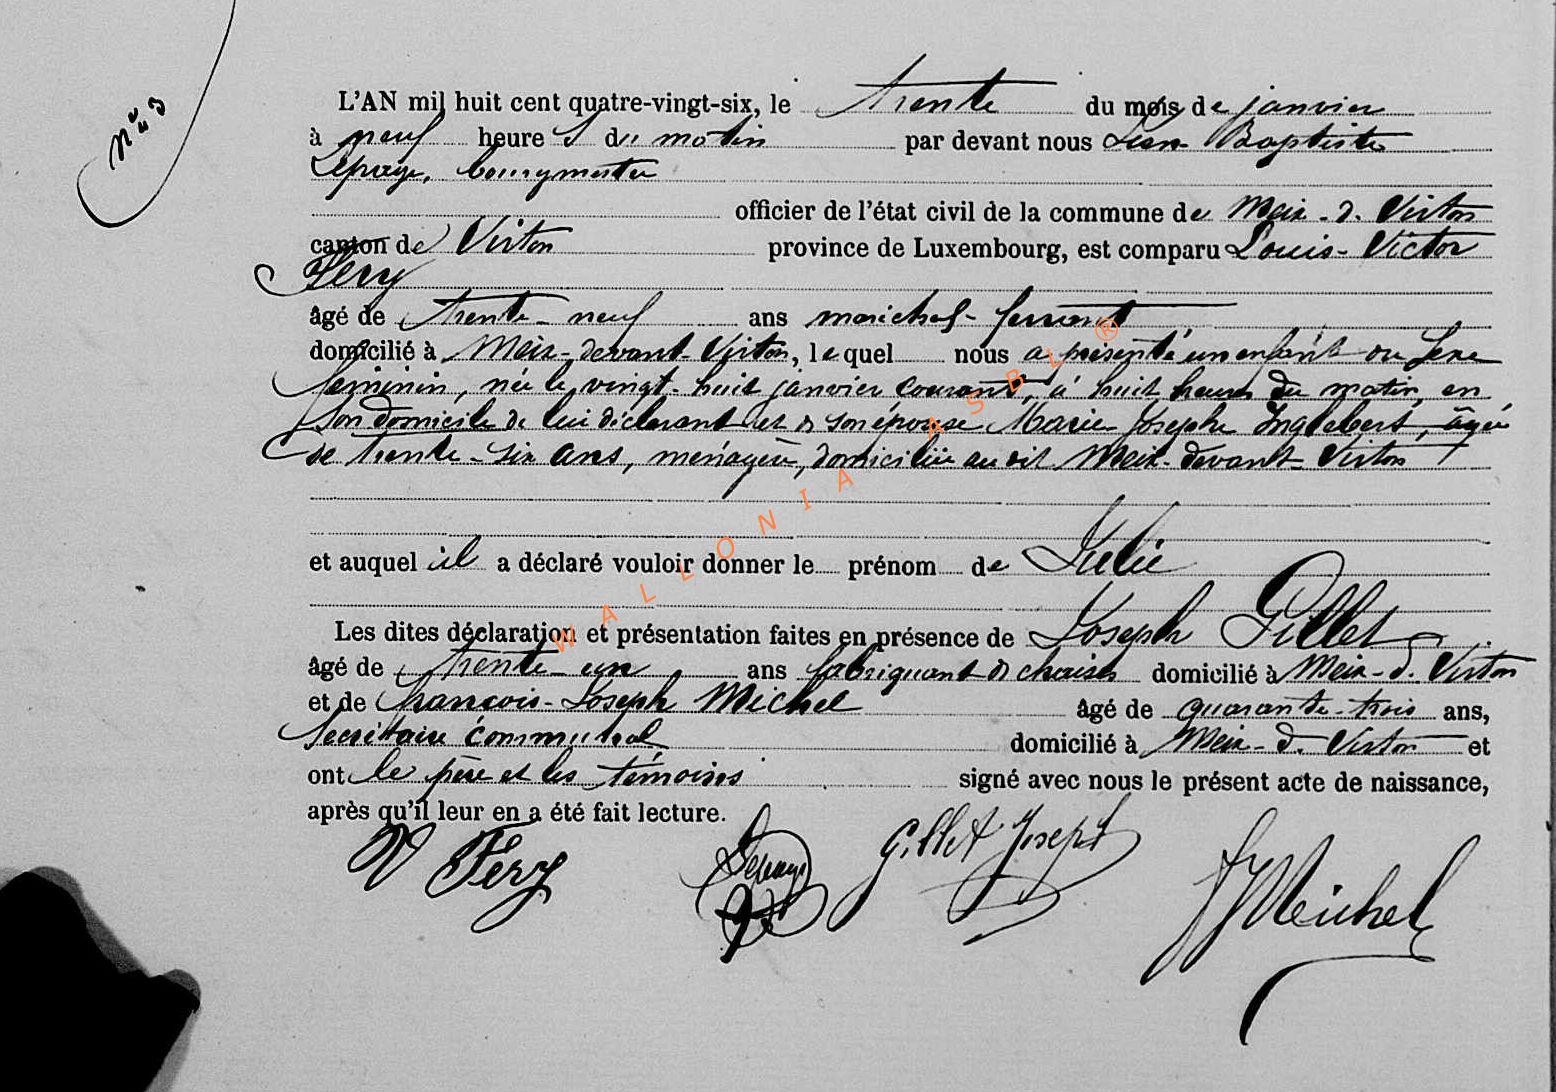 N° 3
L'AN mil huit cent quatre-vingt-six, le trente du mois de janvier
à neuf heures du matin par devant nous Jean Baptiste
Lepage, bourgmestre
officier de l'état civil de la commune de Meix-d. Virton
canton de Virton province de Luxembourg, est comparu Louis-Victor
Fery
âgé de trente-neuf ans maréchal-ferrant
domicilié à Meix-devant-Virton, lequel nous a présenté un enfant du sexe
féminin, née le vingt-huit janvier courant, à huit heures du matin, en
son domicile de lui déclarant et de son épouse Marie Josephe Inglebert, âgée
de trente-six ans, ménagère, domiciliée au dit Meix-devant-Virton
et auquel il a déclaré vouloir donner le prénom de Julie
Les dites déclaration et présentation faites en présence de Joseph Gillet
âgé de trente-un ans fabriquant de chaises domicilié à Meix-d. Virton
et de François-Joseph Michel âgé de quarante-trois ans,
Secrétaire communal domicilié à Meix-d. Virton et
ont le père et les témoins signé avec nous le présent acte de naissance,
après qu'il leur en a été fait lecture.
V Fery Lepage Gillet Joseph FJ Michel
WALLONIA ASBL ®